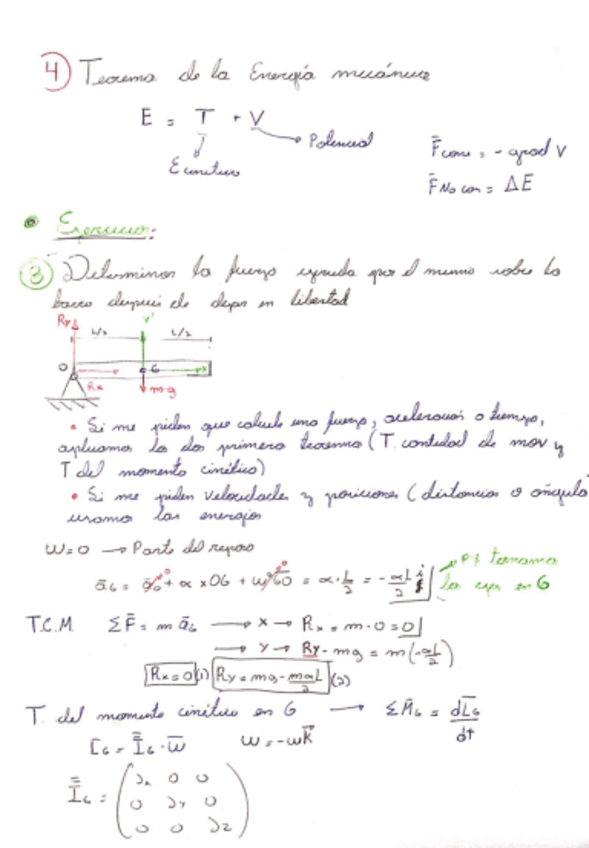 4) Teorema de la Energía mecánica
E = T + V
Potencial
E cinética
F̄cons = - grad V
F̄No con = ΔE
Ejercicios:
3) Determinar la fuerza ejercida por el mismo sobre la
barra después de dejar en libertad
Ry L/2 Y L/2
O G X
Rx mg
• Si me piden que calcule una fuerza, aceleración o tiempo,
aplicamos los dos primeros teoremas (T. cantidad de mov y
T del momento cinético)
• Si me piden velocidades y posiciones (distancias o ángulo
usamos las energías
ω=0 → Parte del reposo
āG = ā0 + α × OG + ω² GO = α · L/2 = - αL/2 j
tomamos
los ejes en G
T.C.M. ΣF̄ = m āG → X → Rx = m · 0 = 0
→ Y → Ry - mg = m(-αL/2)
Rx = 0 (1) Ry = mg - mαL/2 (2)
T. del momento cinético en G → ΣM̄G = dL̄G/dt
LG = ĪG · ω̄ ω = -ωk̄
ĪG = ( Jx 0 0
0 Jy 0
0 0 Jz )